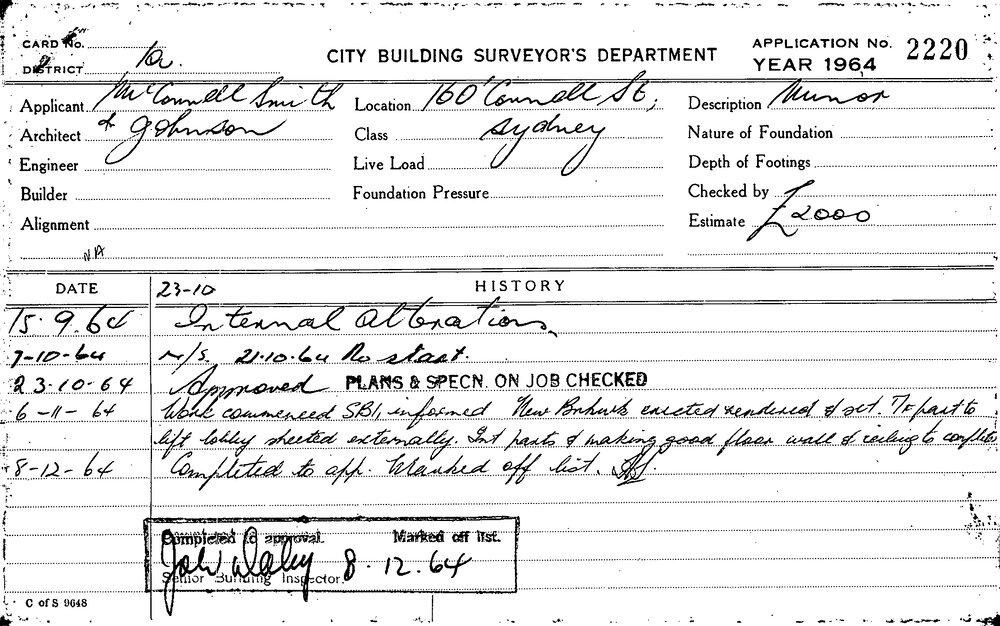 CARD No.
DISTRICT 1a.
CITY BUILDING SURVEYOR'S DEPARTMENT
APPLICATION No. 2220
YEAR 1964
Applicant McConnell Smith
Location 16 O'Connell St,
Description Minor
Architect & Johnson
Class Sydney
Nature of Foundation
Engineer
Live Load
Depth of Footings
Builder
Foundation Pressure
Checked by
Alignment
Estimate £2000
NA
DATE
23-10
HISTORY
15.9.64 Internal Alterations
7-10-64 N/S. 21.10.64 No start.
23.10.64 Approved PLANS & SPECN. ON JOB CHECKED
6-11-64 Work commenced SBI, informed New erected rendered & set. part to
lift lobby sheeted externally. Int parts & making good floor wall & ceiling to complete
8-12-64 Completed to app. Marked off list.
Completed to approval. Marked off list.
8.12.64
Senior Building Inspector.
C of S 9648